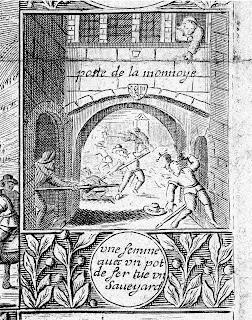 porte de la monnoye
vne femme
auec vn pot
de fer tue vn
Sauoyard